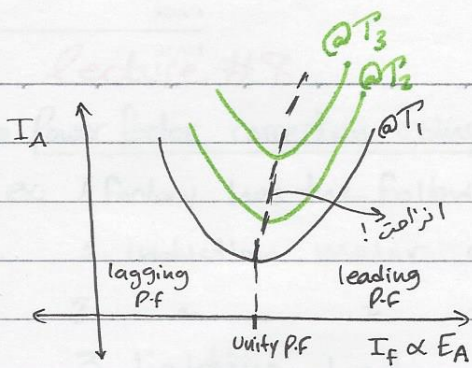 @T3
@T2
@T1
I_A
انزاحت !
lagging
P.f
leading
P.f
Unity P.f
I_f ∝ E_A